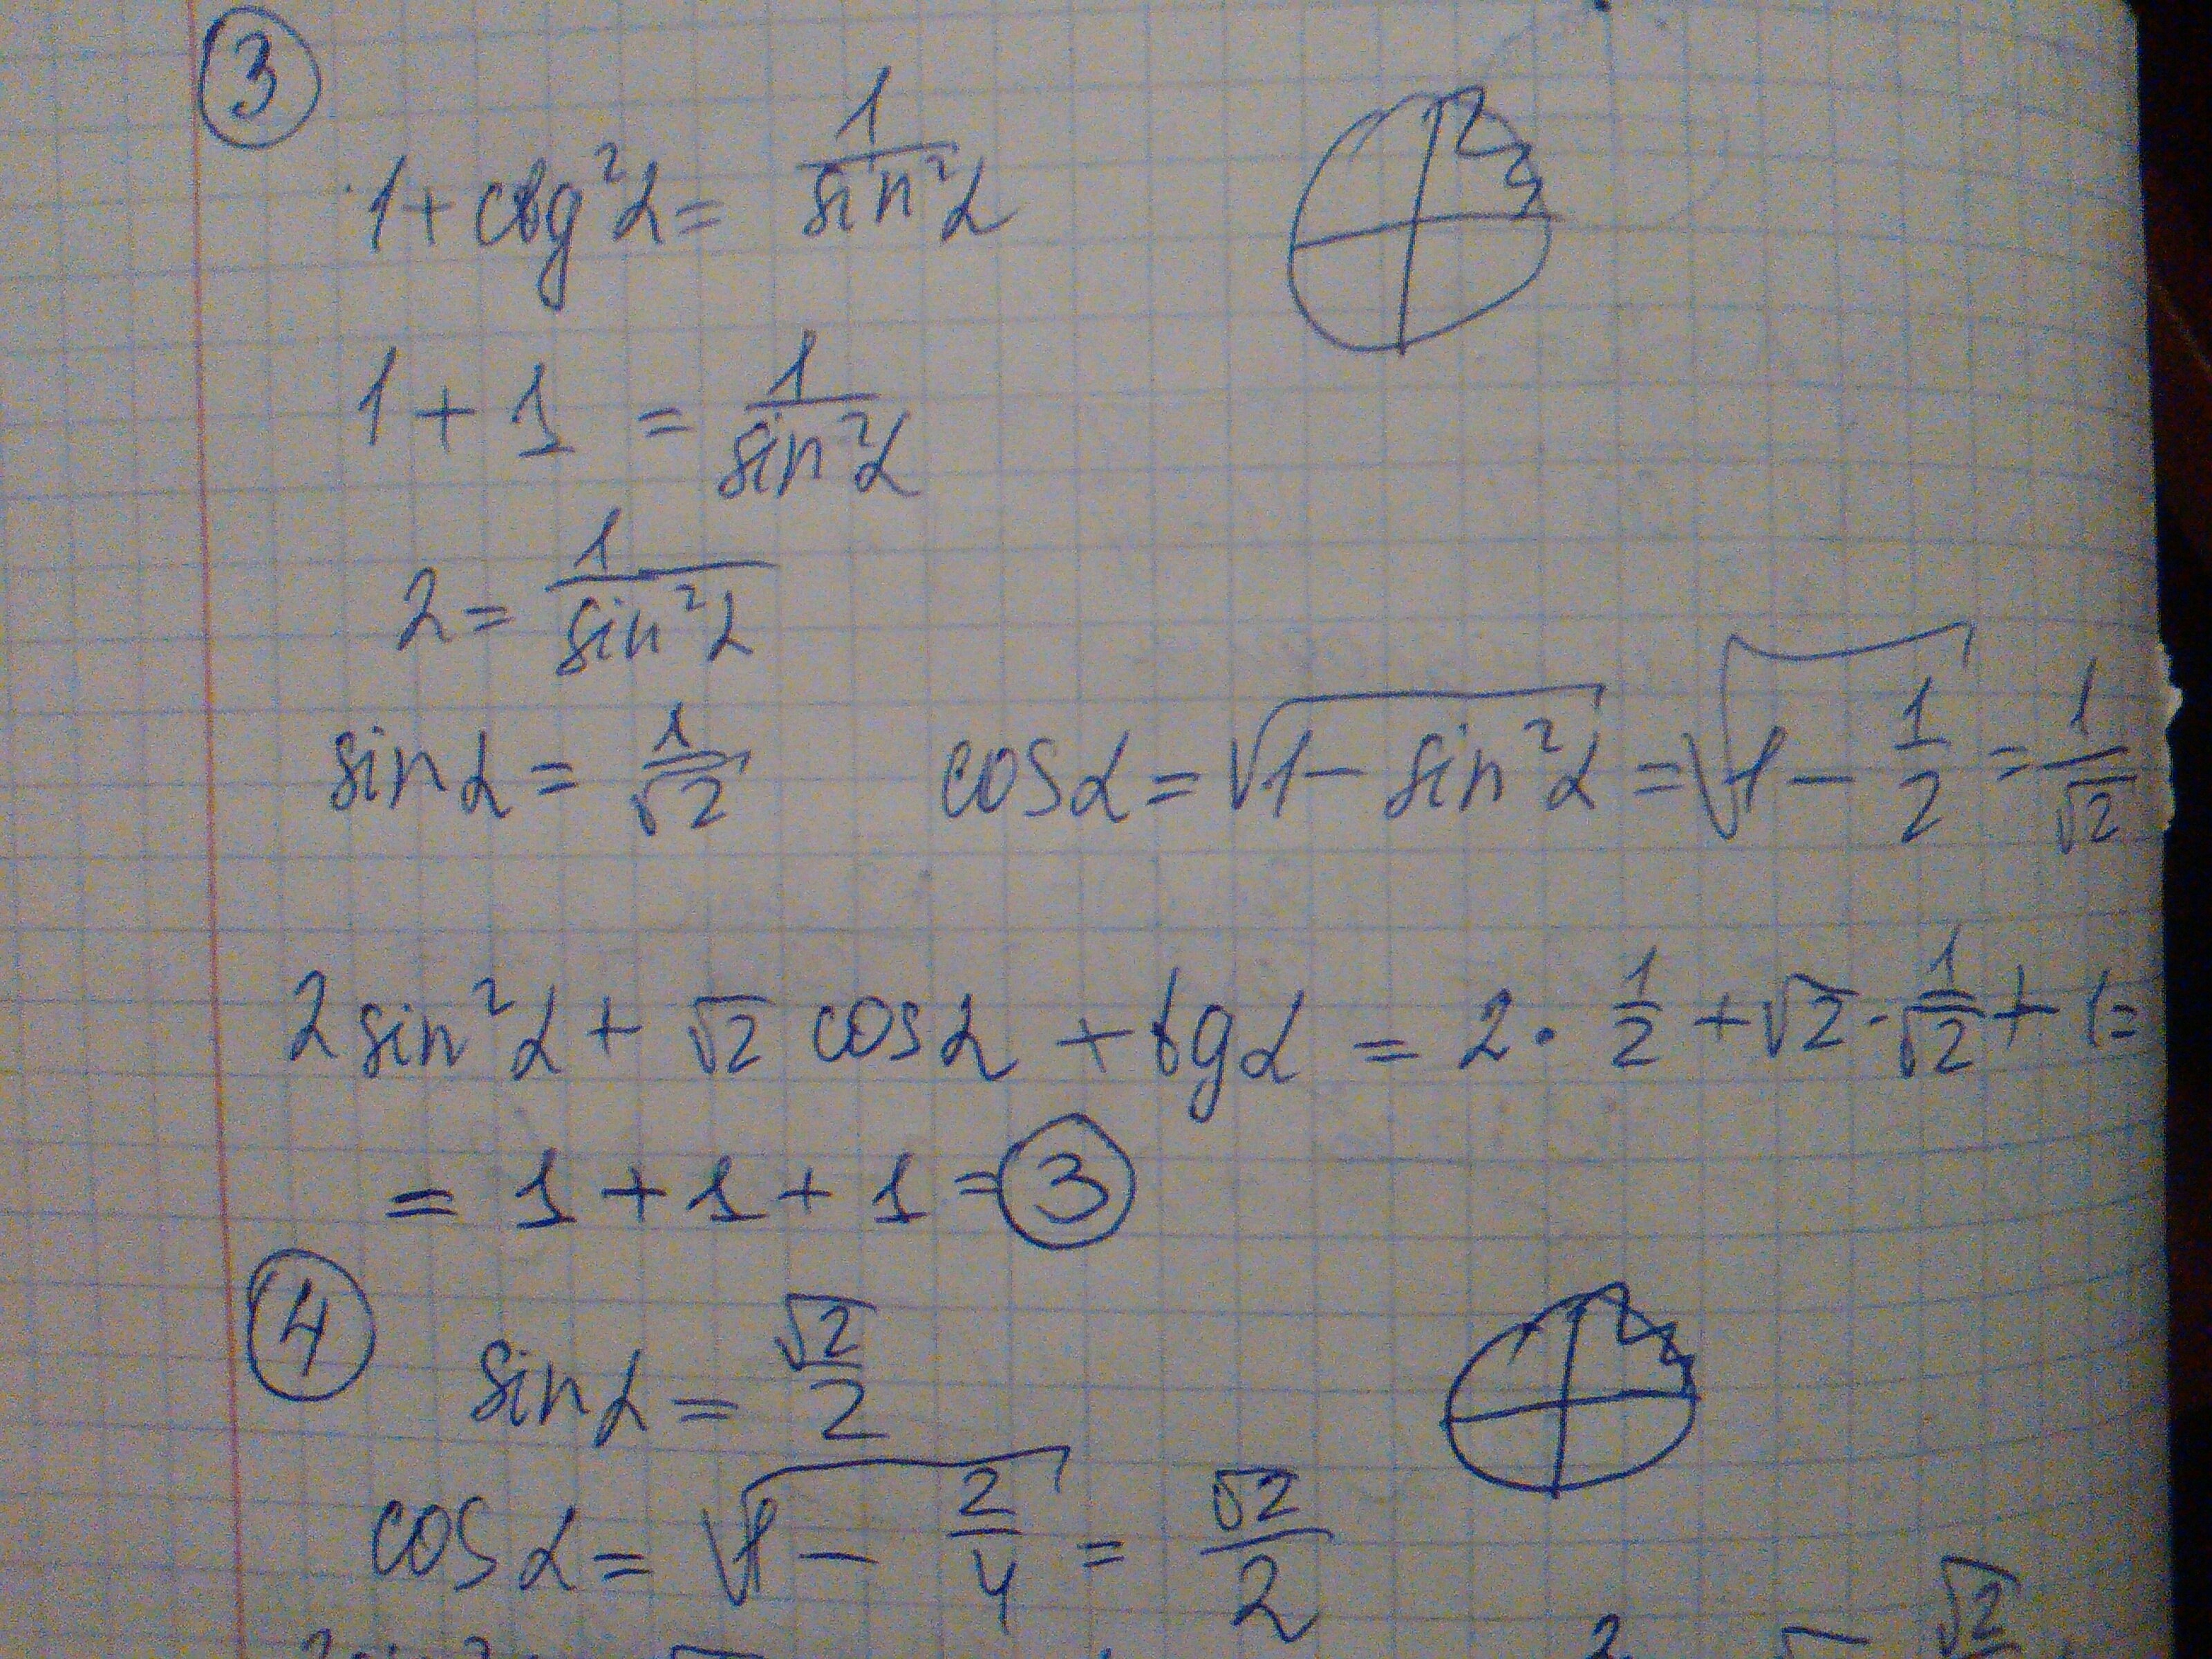 3
1 + ctg²α = 1/sin²α
1 + 1 = 1/sin²α
2 = 1/sin²α
sin α = 1/√2 cos α = √(1 - sin²α) = √(1 - 1/2) = 1/√2
2 sin²α + √2 cos α + tg α = 2 · 1/2 + √2 · 1/√2 + 1 =
= 1 + 1 + 1 = 3
4
sin α = √2/2
cos α = √(1 - 2/4) = √2/2